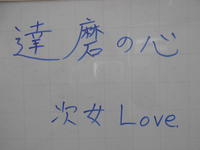 達磨の心
次女 Love.